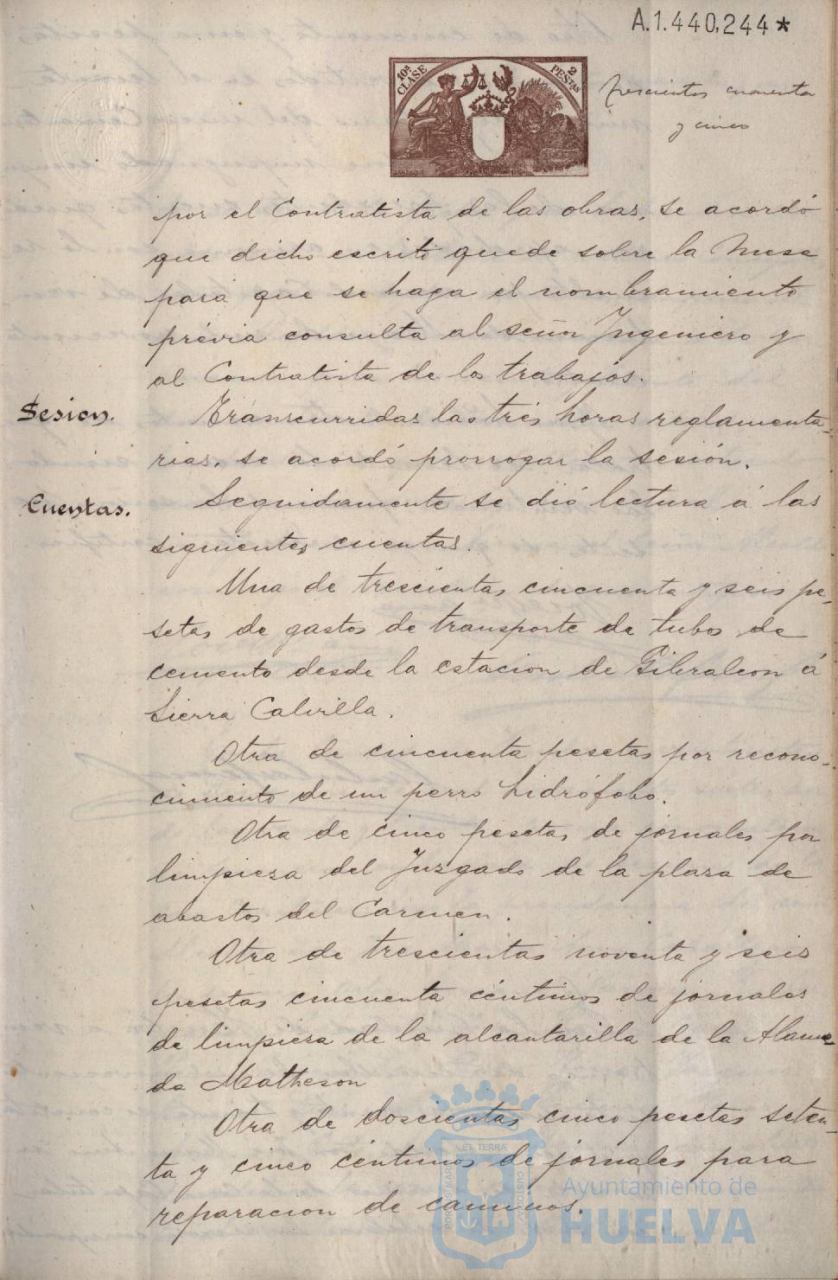 A.1.440,244*
10ª CLASE 2 PESTAS
Trescientos cuarenta
y cinco
por el Contratista de las obras, se acordó
que dicho escrito quede sobre la Mesa
para que se haga el nombramiento
prévia consulta al señor Ingeniero y
al Contratista de los trabajos.
Sesion.
Transcurridas las tres horas reglamenta-
rias, se acordó prorrogar la sesión.
Cuentas.
Seguidamente se dió lectura á las
siguientes cuentas.
Una de trescientas cincuenta y seis pe-
setas de gastos de transporte de tubos de
cemento desde la estacion de Gibraleon á
Sierra Calvilla.
Otra de cincuenta pesetas por recono-
cimiento de un perro hidrófobo.
Otra de cinco pesetas de jornales por
limpieza del Juzgado de la plaza de
abastos del Carmen.
Otra de trescientas noventa y seis
pesetas cincuenta céntimos de jornales
de limpieza de la alcantarilla de la Alame-
da Matheson
Otra de doscientas cinco pesetas seten-
ta y cinco céntimos de jornales para
reparacion de caminos.
ET TERRÆ
Ayuntamiento de
HUELVA